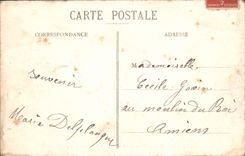 CARTE POSTALE
CORRESPONDANCE
ADRESSE
Mademoiselle
Cécile
souvenir
au moulin du Roi
Marie Delplanque
Amiens